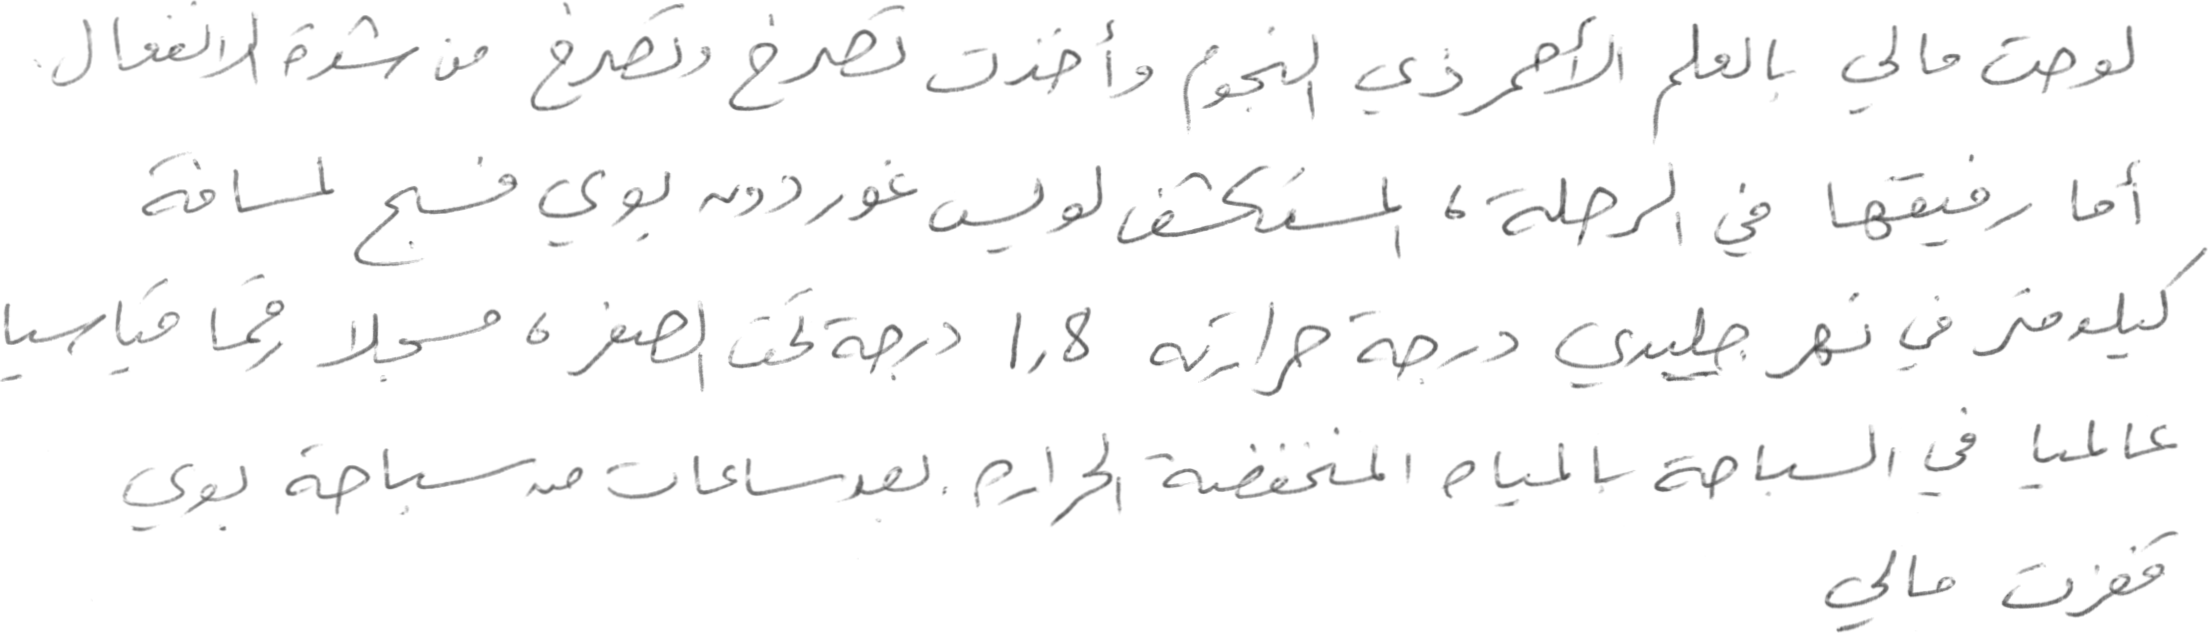 لوحت مالي بالعلم الأحمر ذي النجوم وأخذت تصرخ وتصرخ من شدة الانفعال.
أما رفيقها في الرحلة، المستكشف لويس غوردون بوي فسبح لمسافة
كيلومتر في نهر جليدي درجة حرارته 1,8 درجة تحت الصفر، مسجلا رقما قياسيا
عالميا في السباحة بالمياه المنخفضة الحرارة. بعد ساعات من سباحة بوي
قفزت مالي